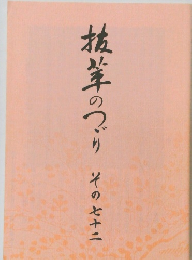 抜萃のつゞり その七十二